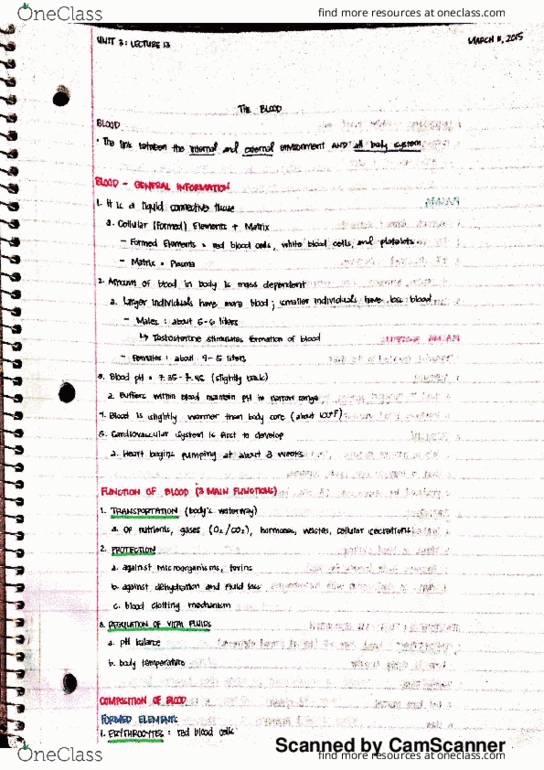 OneClass
find more resources at oneclass.com
UNIT 3: LECTURE 13
MARCH 11, 2015
THE BLOOD
BLOOD
• The link between the internal and external environment AND all body system
BLOOD - GENERAL INFORMATION
1. It is a liquid connective tissue
a. Cellular (Formed) Elements + Matrix
- Formed Elements = red blood cells, white blood cells, and platelets
- Matrix = Plasma
2. Amount of blood in body is mass dependent
a. Larger individuals have more blood; smaller individuals have less blood
- Males: about 5-6 liters
↳ Testosterone stimulates formation of blood
- Females: about 4-5 liters
3. Blood pH = 7.35-7.45 (slightly basic)
a. Buffers within blood maintain pH in narrow range
4. Blood is slightly warmer than body core (about 100°F)
5. Cardiovascular system is first to develop
a. Heart begins pumping at about 3 weeks
FUNCTION OF BLOOD (3 MAIN FUNCTIONS)
1. TRANSPORTATION (body's waterway)
a. OF nutrients, gases (O2/CO2), hormones, wastes, cellular secretions
2. PROTECTION
a. against microorganisms, toxins
b. against dehydration and fluid loss
c. blood clotting mechanism
3. REGULATION OF VITAL FLUIDS
a. pH balance
b. body temperature
COMPOSITION OF BLOOD
FORMED ELEMENTS
1. ERYTHROCYTES: red blood cells
Scanned by CamScanner
OneClass
find more resources at oneclass.com